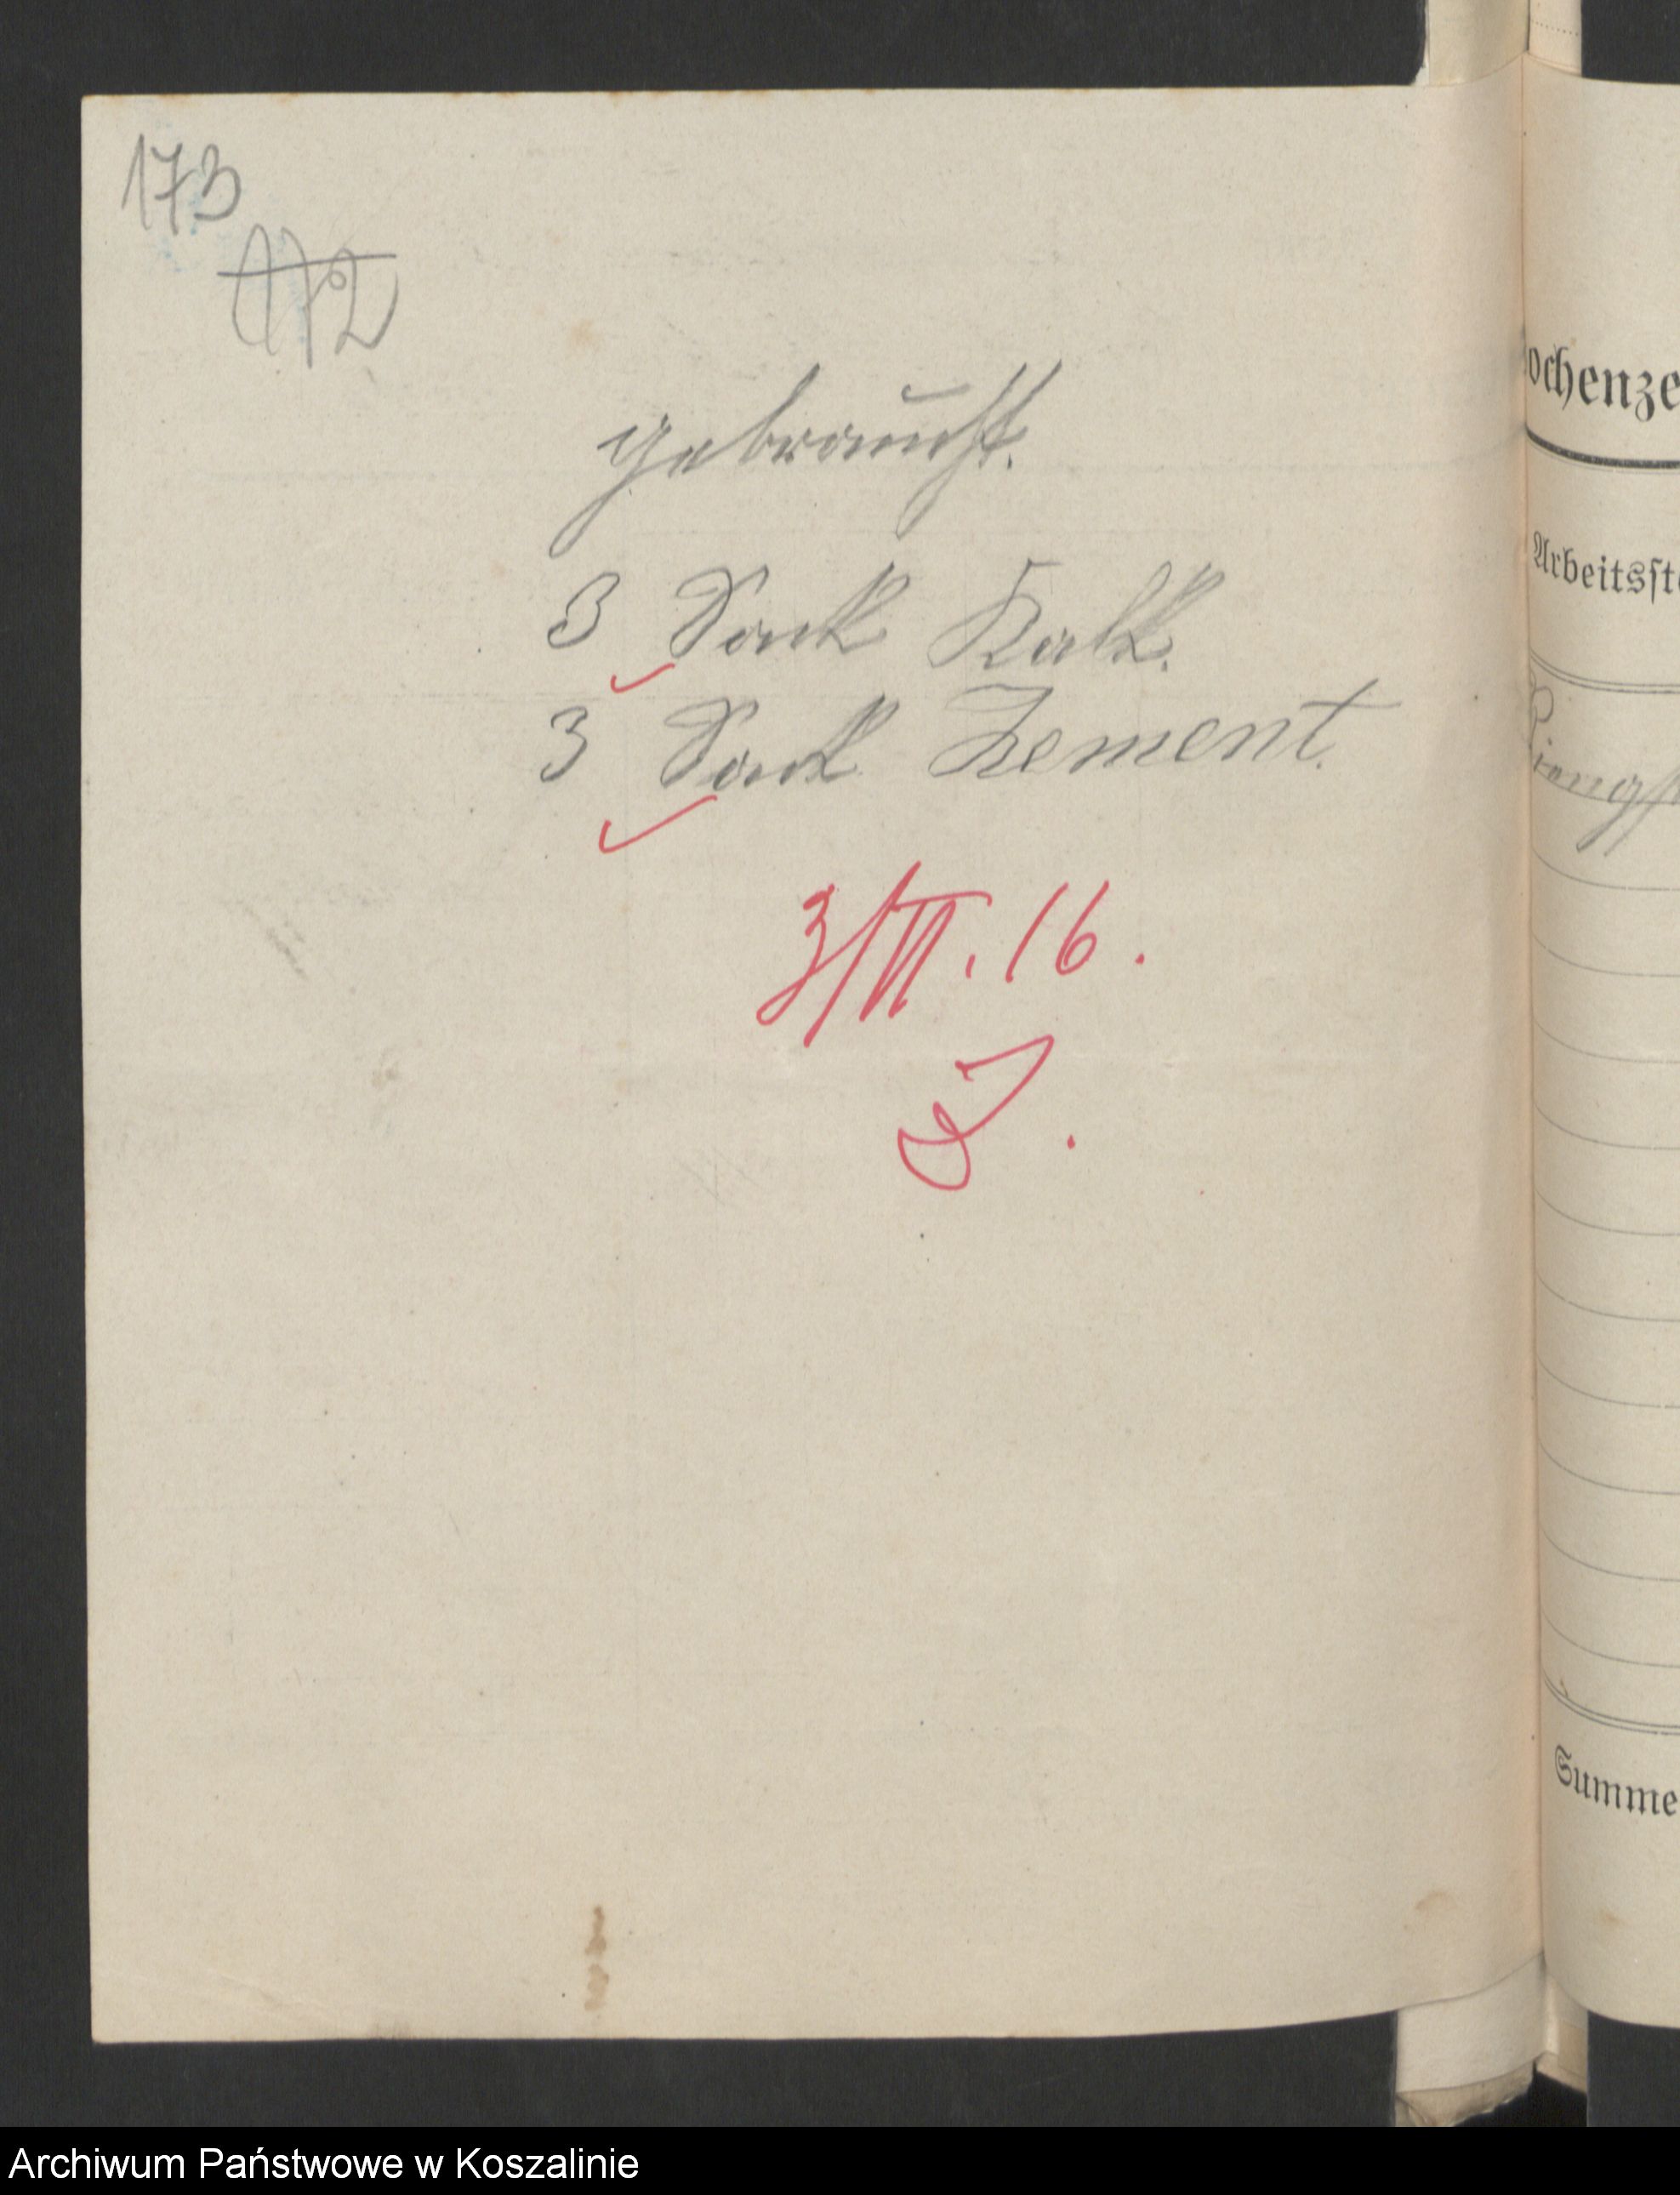 173
172
gebraucht.
3 Sack Kalk.
3 Sack Zement.
3/II. 16.
J.
ochenze
Arbeitsste
Summe
Archiwum Państwowe w Koszalinie